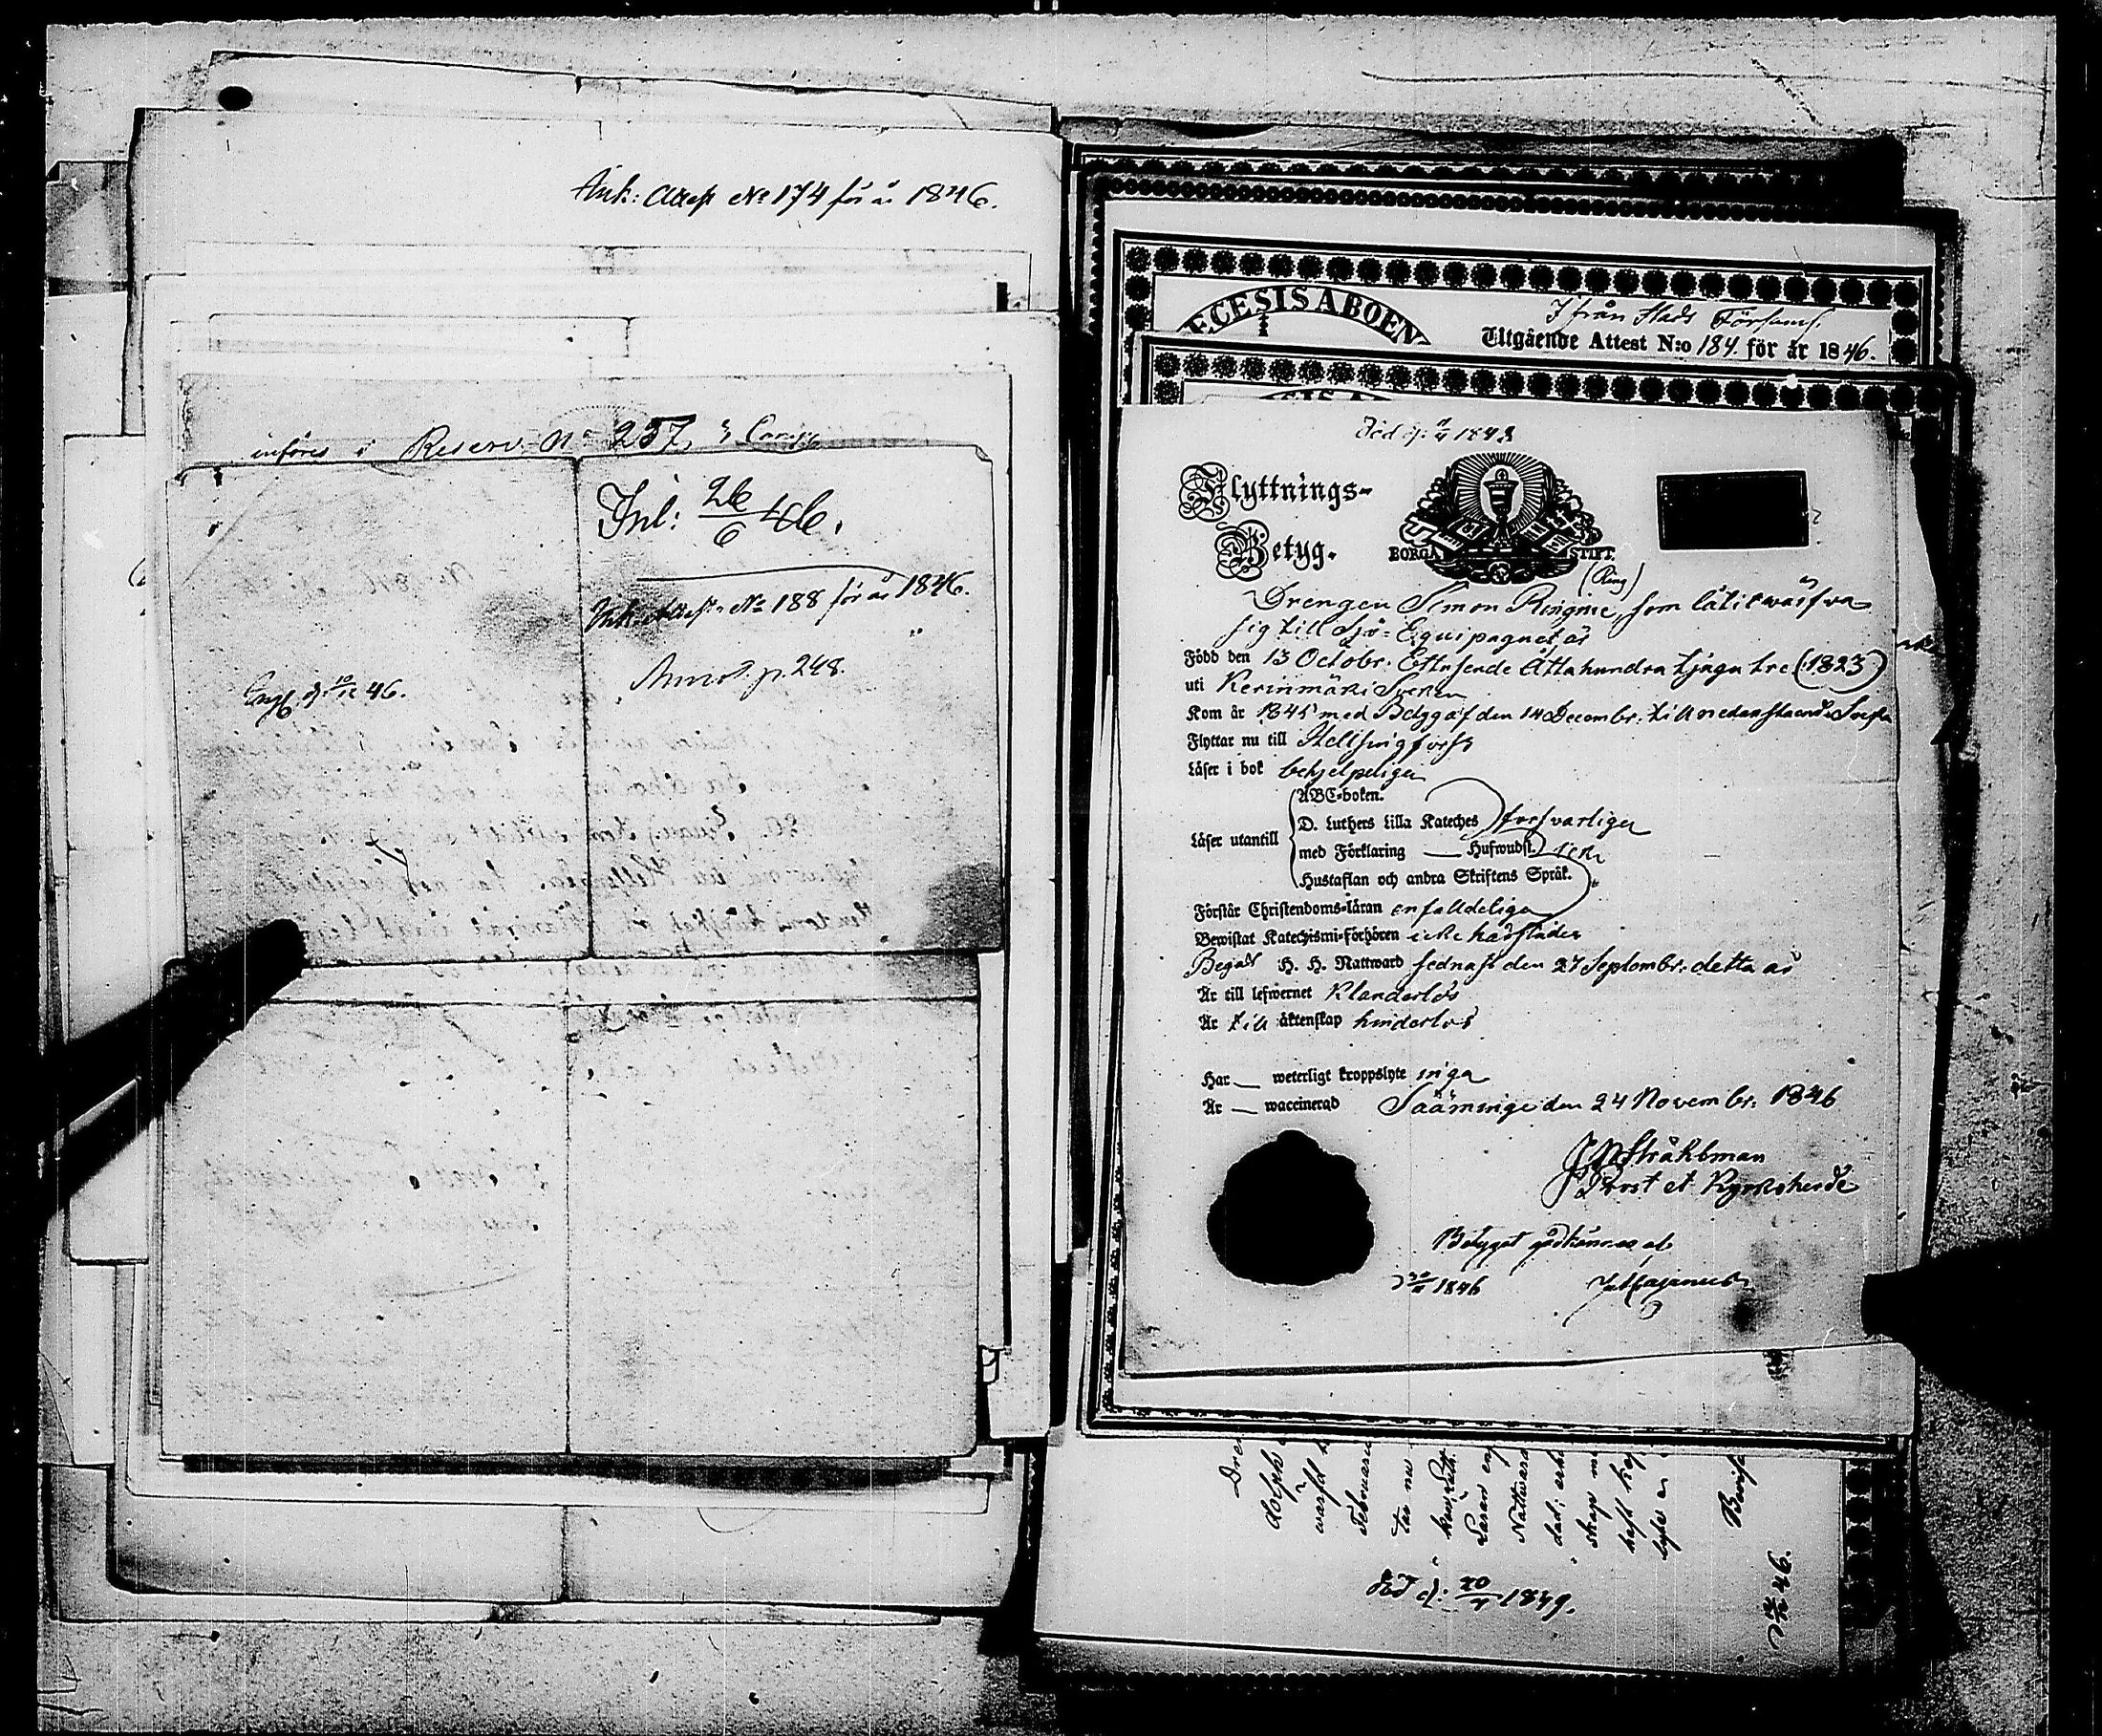 Ank: Attest No 174 för år 1846.
införes i Reserv. No 257, 3 Comp.
Inl: 26/6 46.
Ank. Attest No 188 för år 1846.
Annot. p. 248.
d. 10/12 46.
ECESIS ABOEN
Ifrån Stads Församl.
Utgående Attest N:o 184. för år 1846.
Död d: 1848
Flyttnings-
Betyg.
BORGÅ STIFT.
(Ring)
Drengen Simon Ringine, som låtit wärfva
sig till Sjö-Equipaget är
Född den 13 Octobr. Ettusende Åttahundra tjugu tre (1823)
uti Kerimäki Socken
Kom år 1845 med Betyg af den 14 Decembr. till nedanstaende Socken
Flyttar nu till Hellsingfors
Läser i bok behjelpeligen
Läser utantill
ABC-boken.
D. Luthers Lilla Kateches försvarligen
med Förklaring — Hufwudst. icke
Hustaflan och andra Skriftens Språk.
Förstår Christendoms-läran enfalldeligen
Bewistat Katechismi-förhören icke härstädes
Begått H. H. Nattward sednast den 27 Septembr. detta år
Är till lefwernet Klanderlös
Är till äktenskap hinderlös
Har — weterligt kroppslyte inga
Är — waccinerad
Sääminge den 24 Novembr. 1846
Stråhlman
Prost et Kyrkoherde
Betyget godkännes af
1846
Dren
dolph
wärfd
Februarii
tar nu
Läran en
Nattward
skap
haft kop
lyte
Bevis
Död d: 20/4 1849.
46.